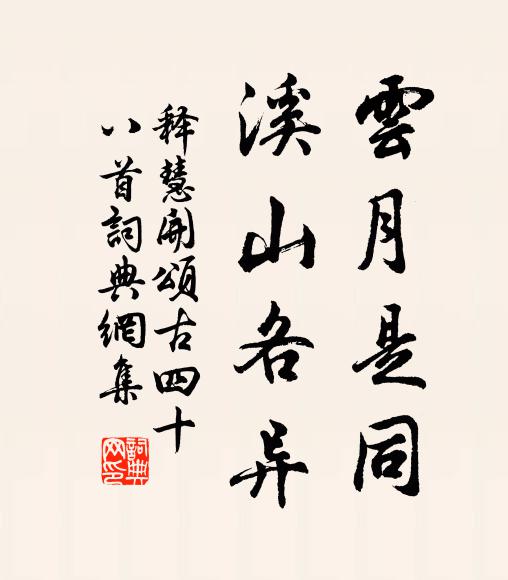 雲月是同
溪山各异
释慧開頌古四十
八首詞典網集
詞典网印